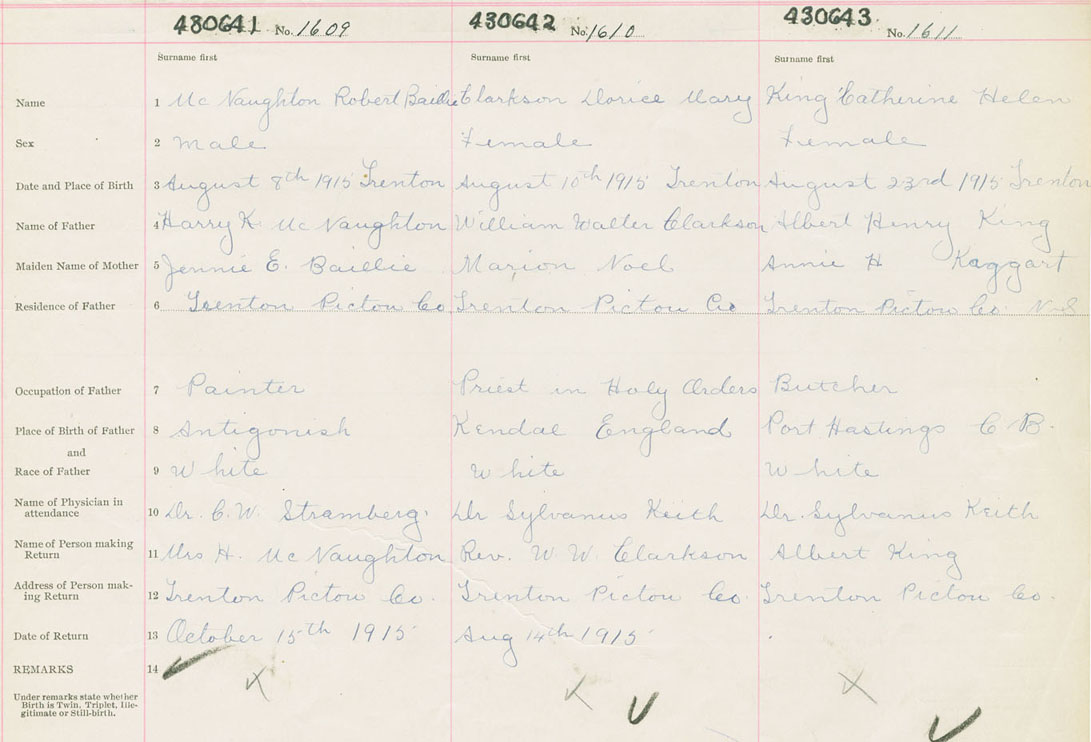 430641 No. 1609 430642 No. 1610 430643 No. 1611
Surname first Surname first Surname first
Name 1 Mc Naughton Robert Baillie Clarkson Dorice Mary King Catherine Helen
Sex 2 Male Female Female
Date and Place of Birth 3 August 8th 1915 Trenton August 10th 1915 Trenton August 23rd 1915 Trenton
Name of Father 4 Harry K. Mc Naughton William Walter Clarkson Albert Henry King
Maiden Name of Mother 5 Jennie E. Baillie Marion Noel Annie H Kaggart
Residence of Father 6 Trenton Pictou Co Trenton Pictou Co Trenton Pictou Co N.S
Occupation of Father 7 Painter Priest in Holy Orders Butcher
Place of Birth of Father 8 Antigonish Kendal England Port Hastings C B.
and
Race of Father 9 White White White
Name of Physician in
attendance 10 Dr. C. W. Stramberg. Dr Sylvanus Keith Dr. Sylvanus Keith
Name of Person making
Return 11 Mrs H. Mc Naughton Rev. W. W. Clarkson Albert King
Address of Person mak-
ing Return 12 Trenton Pictou Co. Trenton Pictou Co. Trenton Pictou Co.
Date of Return 13 October 15th 1915 Aug 14th 1915
REMARKS 14
Under remarks state whether
Birth is Twin, Triplet, Ille-
gitimate or Still-birth.